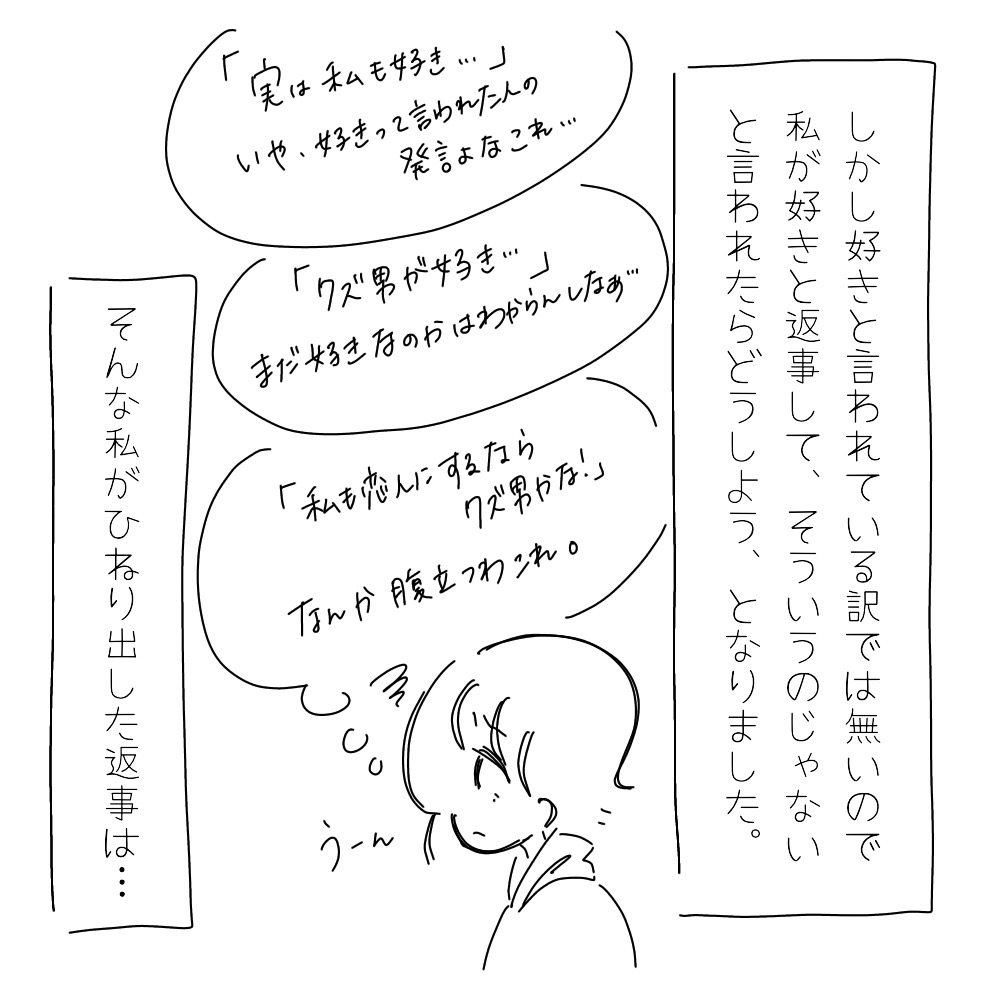 しかし好きと言われている訳では無いので
私が好きと返事して、そういうのじゃない
と言われたらどうしよう、となりました。
「実は私も好き…」
いや、好きって言われた人の
発言よなこれ…
「クズ男が好き…」
まだ好きなのかはわからんしなぁ…
「私も恋人にするなら
クズ男かな!」
なんか腹立つわこれ。
うーん
そんな私がひねり出した返事は…